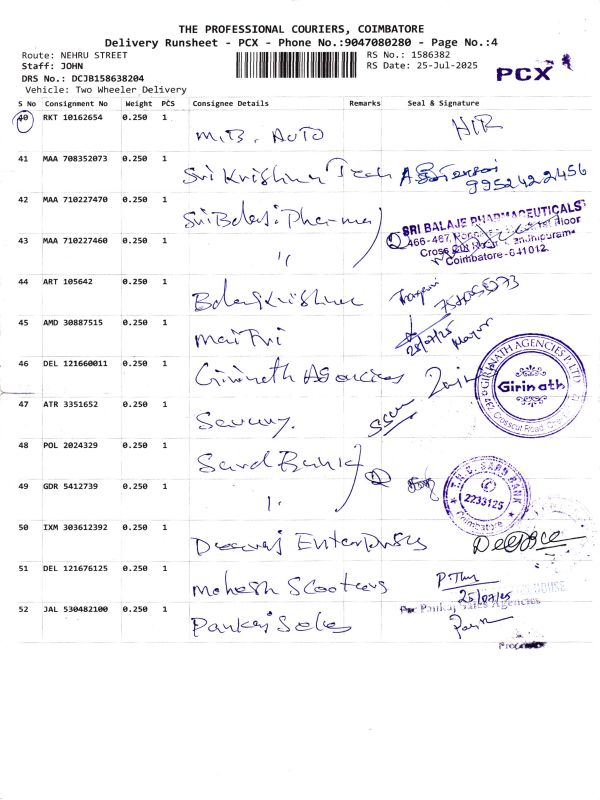 THE PROFESSIONAL COURIERS, COIMBATORE
Delivery Runsheet - PCX - Phone No.:9047080280 - Page No.:4
Route: NEHRU STREET RS No.: 1586382
Staff: JOHN RS Date: 25-Jul-2025
DRS No.: DCJB158638204 PCX
Vehicle: Two Wheeler Delivery
S No Consignment No Weight PCS Consignee Details Remarks Seal & Signature
40 RKT 10162654 0.250 1 M.B. AUTO
41 MAA 708352073 0.250 1 Sri Krishna Tech 9952422456
42 MAA 710227470 0.250 1 Sri Balaji Pharma
SRI BALAJE PHARMACEUTICALS
43 MAA 710227460 0.250 1 "
Coimbatore-641012
44 ART 105642 0.250 1 Balakrishna
45 AMD 30887515 0.250 1 Maitri 25/07/25
46 DEL 121660011 0.250 1 Girinath Agencies
GIRINATH AGENCIES P LTD
Girinath
47 ATR 3351652 0.250 1
48 POL 2024329 0.250 1 Sard Bank
49 GDR 5412739 0.250 1 "
SARD BANK
2233125
Coimbatore
50 IXM 303612392 0.250 1 Enterprises
51 DEL 121676125 0.250 1 Mahesh Scooters
25/07/25
52 JAL 530482100 0.250 1 Pankaj Sales
For Pankaj Sales Agencies
Proprietor